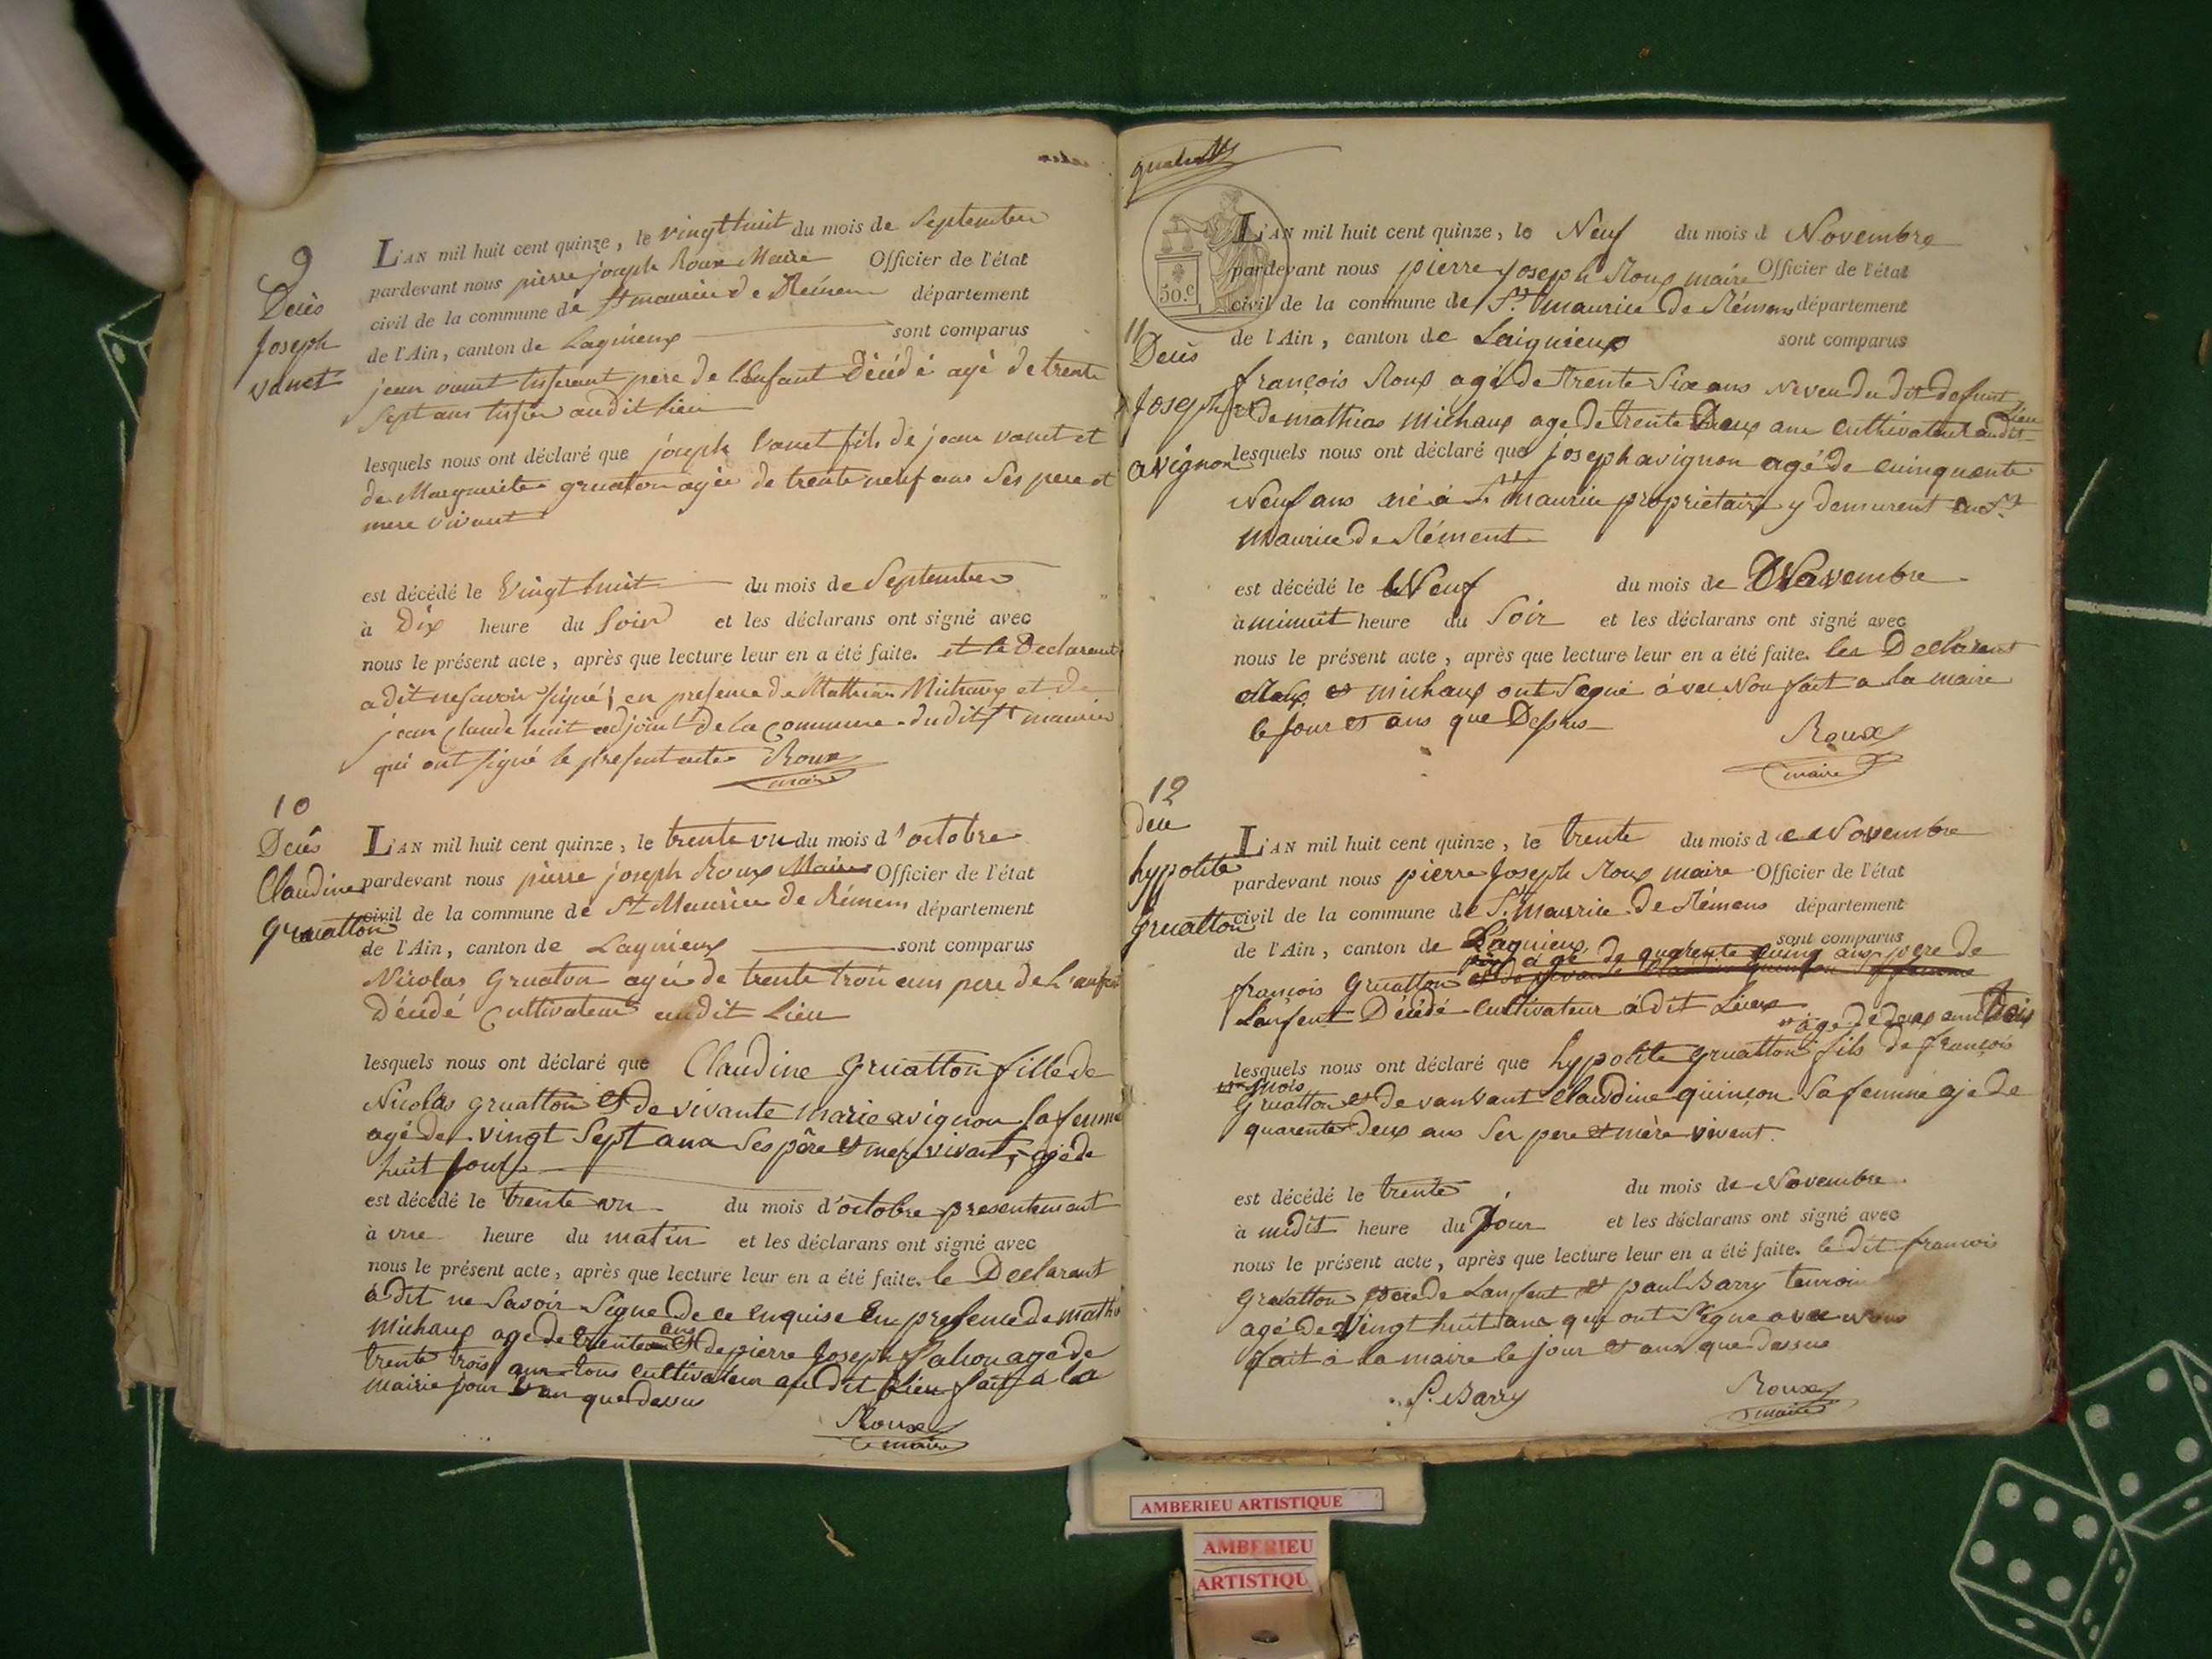 9
Decès
Joseph
vanet
L'AN mil huit cent quinze, le vingt huit du mois de Septembre
pardevant nous pierre joseph Roux Maire Officier de l'état
civil de la commune de St maurice de Rémens département
de l'Ain, canton de Lagnieux sont comparus
jean vanet tisserant pere de L'enfant Décédé agé de trente
sept ans audit lieu
lesquels nous ont déclaré que joseph vanet fils de jean vanet et
de Marguerite gruaton agée de trente neuf ans Ses pere et
mere vivant
est décédé le Vingt huit du mois de Septembre
à Dix heure du Soir et les déclarans ont signé avec
nous le présent acte, après que lecture leur en a été faite. et le Declarant
a dit ne savoir signé en presence de Mathias Michaux et de
jean Claude huit adjoint de la Commune du dit st maurice
qui ont signé le present acte Roux
maire
10
Decès
Claudine
gruatton
L'AN mil huit cent quinze, le trente un du mois d'octobre
pardevant nous pierre joseph Roux Maire Officier de l'état
civil de la commune de St Maurice de Rémens département
de l'Ain, canton de Lagnieux sont comparus
Nicolas Gruaton agée de trente trois ans pere de L'enfant
Décédé Cultivateur audit Lieu
lesquels nous ont déclaré que Claudine gruatton fille de
Nicolas gruatton et de vivante marie avignon sa femme
agé de vingt Sept ans Ses père et mere vivant agé de
huit jour
est décédé le trente un du mois d'octobre presentement
à une heure du matin et les déclarans ont signé avec
nous le présent acte, après que lecture leur en a été faite. le Declarant
a dit ne Savoir Signe de ce enquise En presence de
Michaux agé de trente ans et de pierre Joseph agé de
trente trois ans tous cultivateur audit Lieu fait a la
mairie jour an que desus
Roux
maire
L'AN mil huit cent quinze, le Neuf du mois d Novembre
pardevant nous pierre Joseph Roux maire Officier de l'état
50.c civil de la commune de St maurice de Rémens département
de l'Ain, canton de Laignieux sont comparus
11
Decès
Joseph
avignon
françois Roux agé de trente Six ans neveu du dit defunt
et de mathias michaux age de trente Deux ans cultivateur audit Lieu
lesquels nous ont déclaré que joseph avignon agé de cuinquante
Neuf ans né à St maurice proprietaire y demurent au St
maurice de Rément
est décédé le Neuf du mois de Novembre
à minuit heure du Soir et les déclarans ont signé avec
nous le présent acte, après que lecture leur en a été faite. les Declarent
Roux et michaux ont Segné avec Nou fait a la maire
le jour et ans que Dessus
Roux
maire
12
hypolite
gruatton
L'AN mil huit cent quinze, le trente du mois d e Novembre
pardevant nous pierre Joseph Roux maire Officier de l'état
civil de la commune de St maurice de Rémens département
de l'Ain, canton de Lagnieux sont comparus
françois Gruatton agé de quarente cuinq ans pere de
Lanfent Décédé cultivateur adit Lieux
lesquels nous ont déclaré que hypolite gruatton agé de deux ans fils de françois
Gruatton et de Claudine quinçon Sa femme agé de
quarente Deux ans Ses pere et mère vivent.
est décédé le trente du mois de Novembre
à midit heure du Jour et les déclarans ont signé avec
nous le présent acte, après que lecture leur en a été faite. le dit francois
Gruatton pere de Lanfent et paul Barry temoin
agé de Vingt huit ans qui ont Segne avec nous
fait à la maire le jour et ans que dessus
P. Barry Roux
maire
AMBERIEU ARTISTIQUE
AMBERIEU
ARTISTIQU